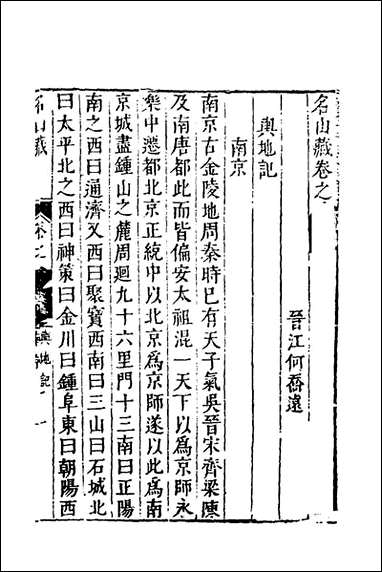 名山藏卷之
晉江何喬遠
輿地記
南京
南京古金陵地周秦時已有天子氣吳晉宋齊梁陳
及南唐都此而皆偏安太祖混一天下以為京師永
樂中遷都北京正統中以北京為京師遂以此為南
京城盡鍾山之麓周迴九十六里門十三南曰正陽
南之西曰通濟又西曰聚寶西南曰三山曰石城北
曰太平北之西曰神策曰金川曰鍾阜東曰朝陽西
名山藏
卷之
輿地記
一